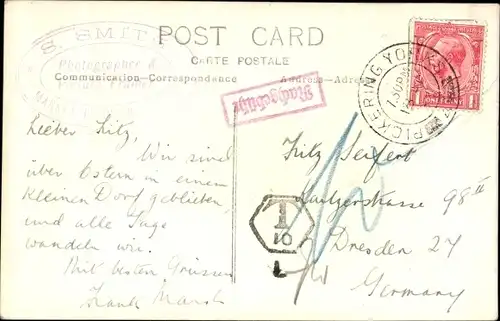 S. SMITH
Photographer &
POST CARD
CARTE POSTALE
Communication—Correspondence
Address—Adresse
Nachgebühr
PICKERING YORKS
ONE PENNY
Lieber Fritz,
Wir sind
über Ostern in einem
kleinen Dorf geblieben,
und alle Tage
wandeln wir.
Mit besten Grüssen
Frank Marsh
Fritz Seifert
98 II
Dresden 27
Germany
T
10
L